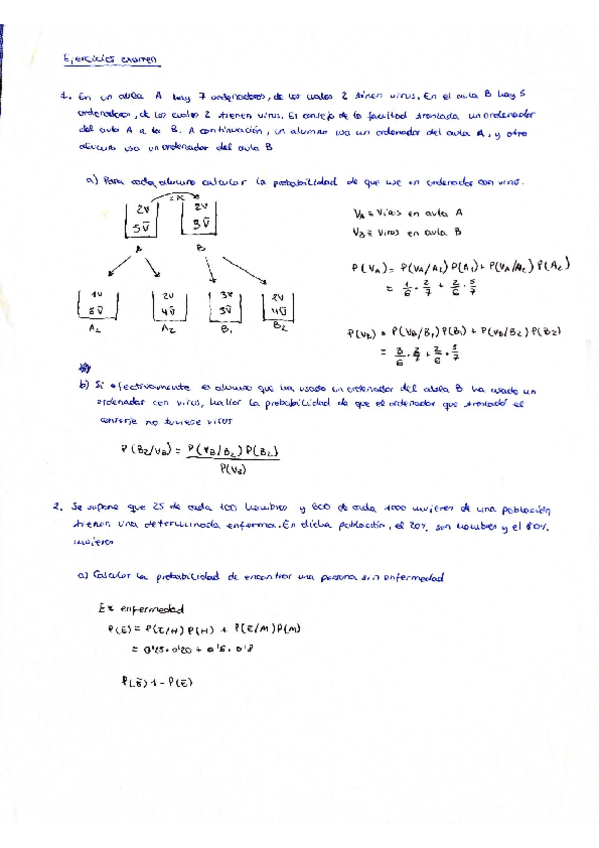 Ejercicios examen
1. En un aula A hay 7 ordenadores, de los cuales 2 tienen virus. En el aula B hay 5
ordenadores, de los cuales 2 tienen virus. El conserje de la facultad traslada un ordenador
del aula A a la B. A continuación, un alumno usa un ordenador del aula A, y otro
alumno usa un ordenador del aula B
a) Para cada alumno calcular la probabilidad de que use un ordenador con virus.
2V 2V
5V̅ 3V̅
A B
1V 2V 3V 2V
5V̅ 4V̅ 3V̅ 4V̅
A₁ A₂ B₁ B₂
VA ≡ Virus en aula A
VB ≡ Virus en aula B
P(VA) = P(VA/A₁) P(A₁) + P(VA/A₂) P(A₂)
= 1/6 · 2/7 + 2/6 · 5/7
P(VB) = P(VB/B₁) P(B₁) + P(VB/B₂) P(B₂)
= 3/6 · 2/7 + 2/6 · 5/7
b) Si efectivamente el alumno que ha usado un ordenador del aula B ha usado un
ordenador con virus, hallar la probabilidad de que el ordenador que trasladó el
conserje no tuviese virus
P(B₂/VB) = P(VB/B₂) P(B₂) / P(VB)
2. Se supone que 25 de cada 100 hombres y 600 de cada 1000 mujeres de una población
tienen una determinada enferma. En dicha población, el 20% son hombres y el 80%
mujeres
a) Calcular la probabilidad de encontrar una persona sin enfermedad
E ≡ enfermedad
P(E) = P(E/H) P(H) + P(E/M) P(M)
= 0'25 · 0'20 + 0'6 · 0'8
P(E̅) 1 - P(E)